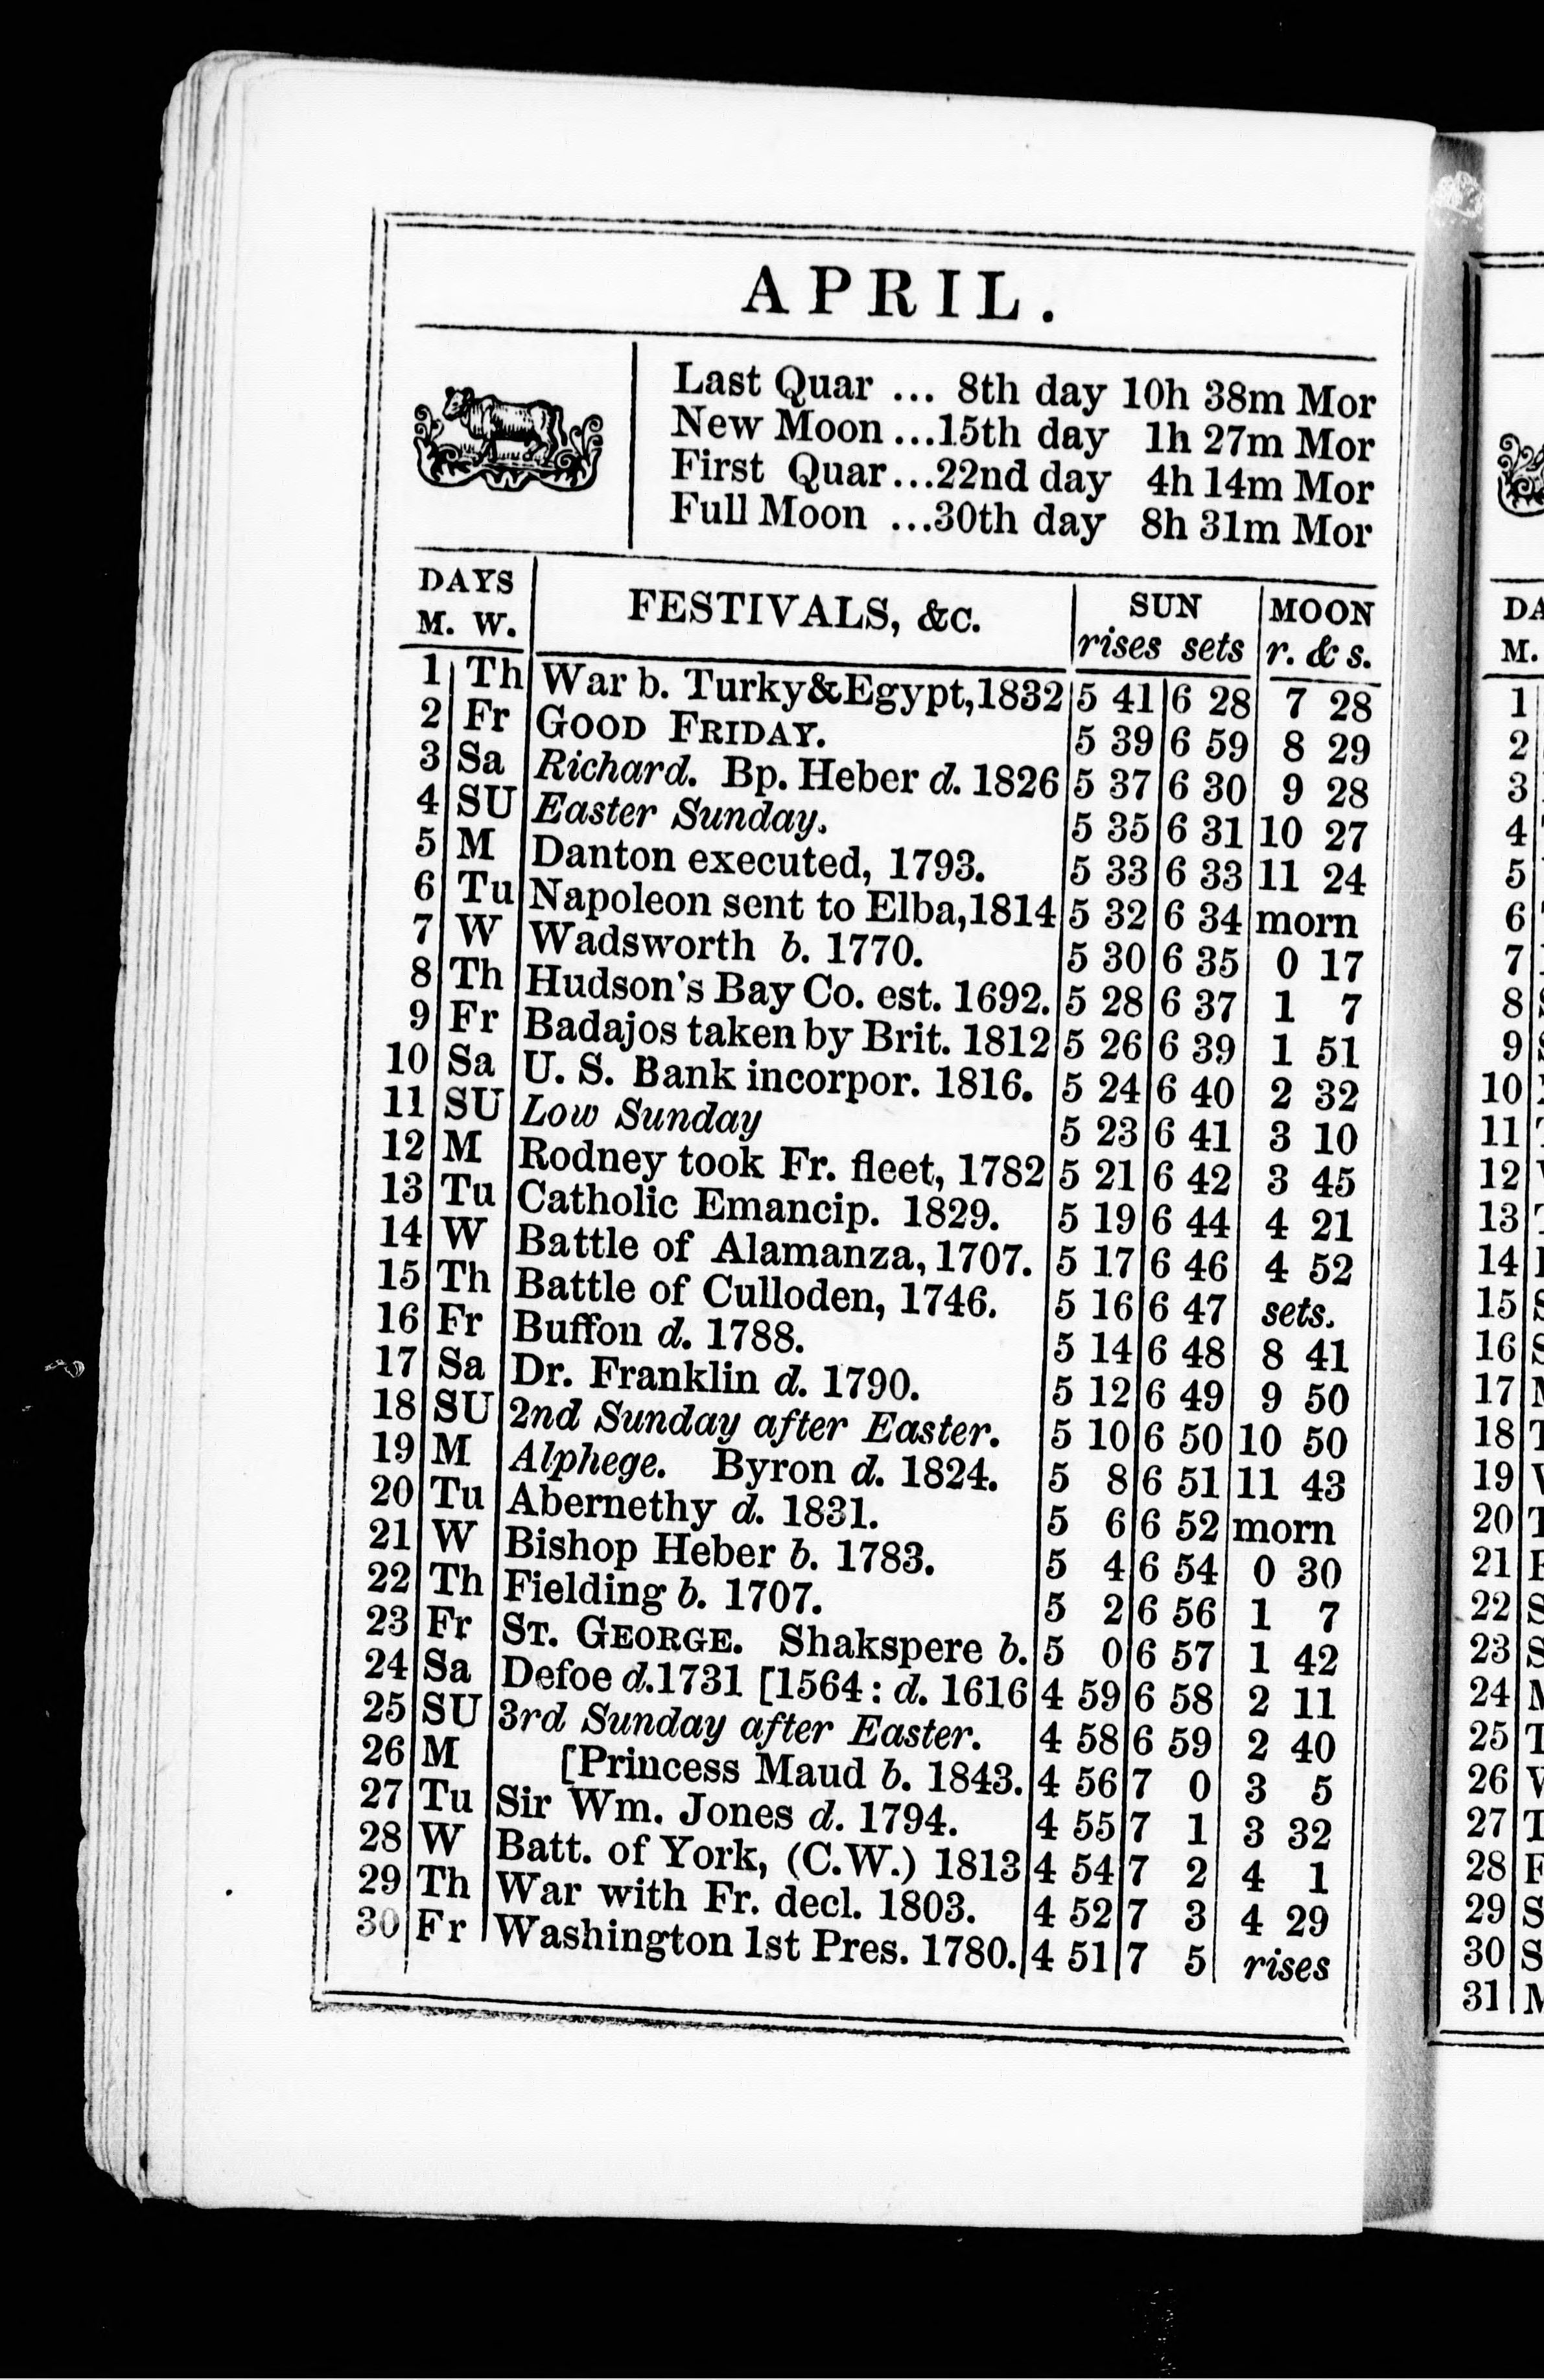 APRIL.
Last Quar ... 8th day 10h 38m Mor
New Moon ...15th day 1h 27m Mor
First Quar...22nd day 4h 14m Mor
Full Moon ...30th day 8h 31m Mor
DAYS FESTIVALS, &c. SUN MOON
M. W. rises sets r. & s.
1 Th War b. Turky&Egypt,1832 5 41 6 28 7 28
2 Fr GOOD FRIDAY. 5 39 6 59 8 29
3 Sa Richard. Bp. Heber d. 1826 5 37 6 30 9 28
4 SU Easter Sunday. 5 35 6 31 10 27
5 M Danton executed, 1793. 5 33 6 33 11 24
6 Tu Napoleon sent to Elba,1814 5 32 6 34 morn
7 W Wadsworth b. 1770. 5 30 6 35 0 17
8 Th Hudson's Bay Co. est. 1692. 5 28 6 37 1 7
9 Fr Badajos taken by Brit. 1812 5 26 6 39 1 51
10 Sa U. S. Bank incorpor. 1816. 5 24 6 40 2 32
11 SU Low Sunday 5 23 6 41 3 10
12 M Rodney took Fr. fleet, 1782 5 21 6 42 3 45
13 Tu Catholic Emancip. 1829. 5 19 6 44 4 21
14 W Battle of Alamanza, 1707. 5 17 6 46 4 52
15 Th Battle of Culloden, 1746. 5 16 6 47 sets.
16 Fr Buffon d. 1788. 5 14 6 48 8 41
17 Sa Dr. Franklin d. 1790. 5 12 6 49 9 50
18 SU 2nd Sunday after Easter. 5 10 6 50 10 50
19 M Alphege. Byron d. 1824. 5 8 6 51 11 43
20 Tu Abernethy d. 1831. 5 6 6 52 morn
21 W Bishop Heber b. 1783. 5 4 6 54 0 30
22 Th Fielding b. 1707. 5 2 6 56 1 7
23 Fr ST. GEORGE. Shakspere b. 5 0 6 57 1 42
24 Sa Defoe d.1731 [1564: d. 1616 4 59 6 58 2 11
25 SU 3rd Sunday after Easter. 4 58 6 59 2 40
26 M [Princess Maud b. 1843. 4 56 7 0 3 5
27 Tu Sir Wm. Jones d. 1794. 4 55 7 1 3 32
28 W Batt. of York, (C.W.) 1813 4 54 7 2 4 1
29 Th War with Fr. decl. 1803. 4 52 7 3 4 29
30 Fr Washington 1st Pres. 1780. 4 51 7 5 rises
M.
1
2
3
4
5
6
7
8
9
10
11
12
13
14
15
16
17
18
19
20
21
22
23
24
25
26
27
28
29
30
31